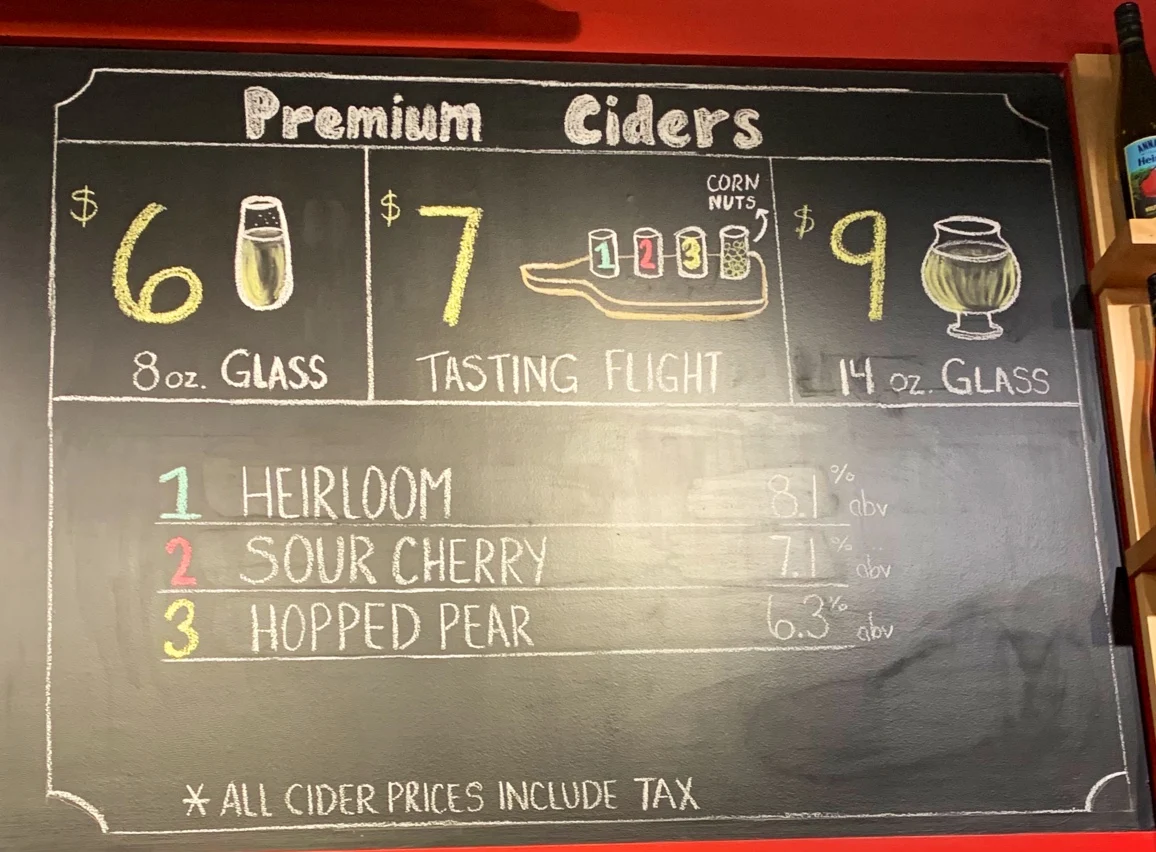 Premium Ciders
CORN
NUTS
$6
$7
1 2 3
$9
8 oz. GLASS
TASTING FLIGHT
14 oz. GLASS
1 HEIRLOOM 8.1% abv
2 SOUR CHERRY 7.1% abv
3 HOPPED PEAR 6.3% abv
* ALL CIDER PRICES INCLUDE TAX